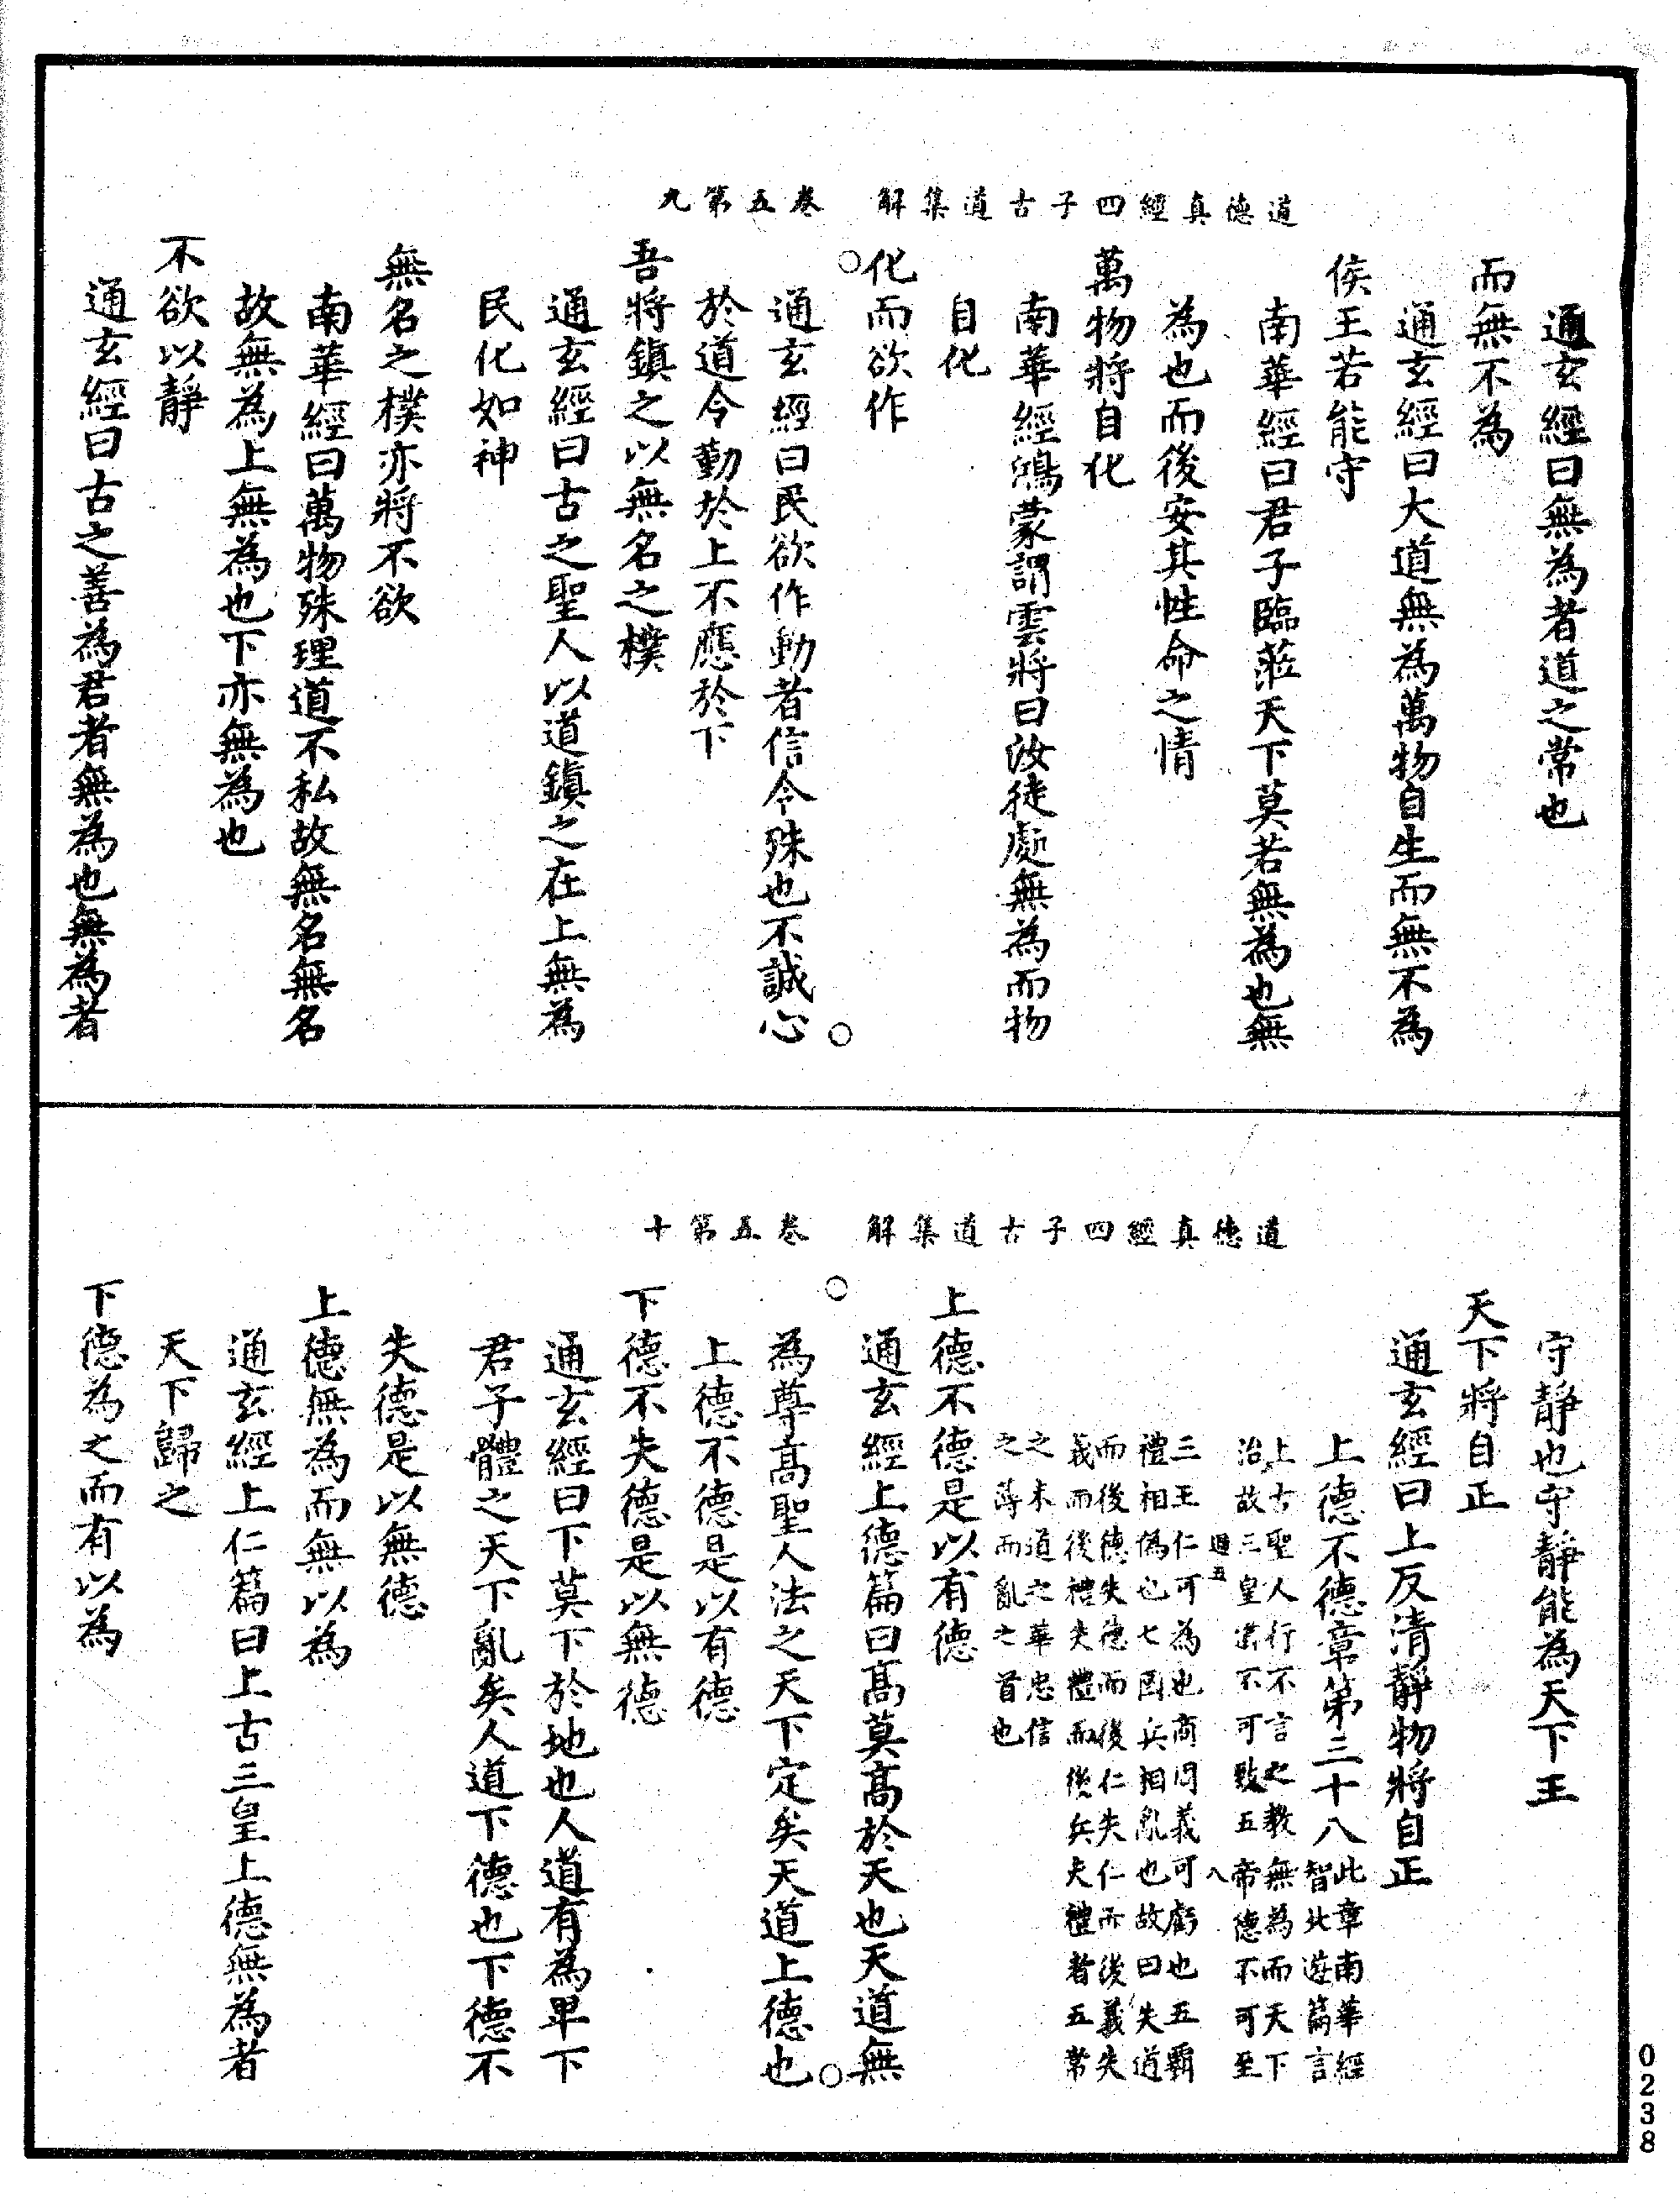 道德真經四子古道集解　卷五第九
通玄經曰無為者道之常也
而無不為
通玄經曰大道無為萬物自生而無不為
侯王若能守
南華經曰君子臨蒞天下莫若無為也無
為也而後安其性命之情
萬物將自化
南華經鴻蒙謂雲將曰汝徒處無為而物
自化
化而欲作
通玄經曰民欲作動者信令殊也不誠心
於道令勤於上不應於下
吾將鎮之以無名之樸
通玄經曰古之聖人以道鎮之在上無為
民化如神
無名之樸亦將不欲
南華經曰萬物殊理道不私故無名無名
故無為上無為也下亦無為也
不欲以靜
通玄經曰古之善為君者無為也無為者
道德真經四子古道集解　卷五第十
守靜也守靜能為天下王
天下將自正
通玄經曰上反清靜物將自正
上德不德章第三十八此章南華經
智北遊篇言
上古聖人行不言之教無為而天下
治故三皇常不可致五帝德不可至
遐五　八
三王仁可為也商同義可虧也五霸
禮相偽也七國兵相亂也故曰失道
而後德失德而後仁失仁而後義失
義而後禮失禮而後兵夫禮者五常
之末道之華忠信
之薄而亂之首也
上德不德是以有德
通玄經上德篇曰高莫高於天也天道無
為尊高聖人法之天下定矣天道上德也
上德不德是以有德
下德不失德是以無德
通玄經曰下莫下於地也人道有為卑下
君子體之天下亂矣人道下德也下德不
失德是以無德
上德無為而無以為
通玄經上仁篇曰上古三皇上德無為者
天下歸之
下德為之而有以為
0238